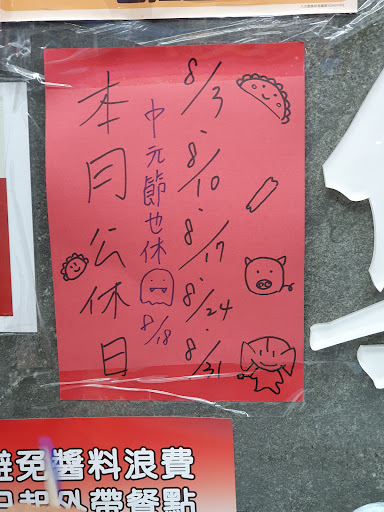 本月公休日
中元節也休
8/18
8/3
8/10
8/17
8/24
8/31
避免醬料浪費